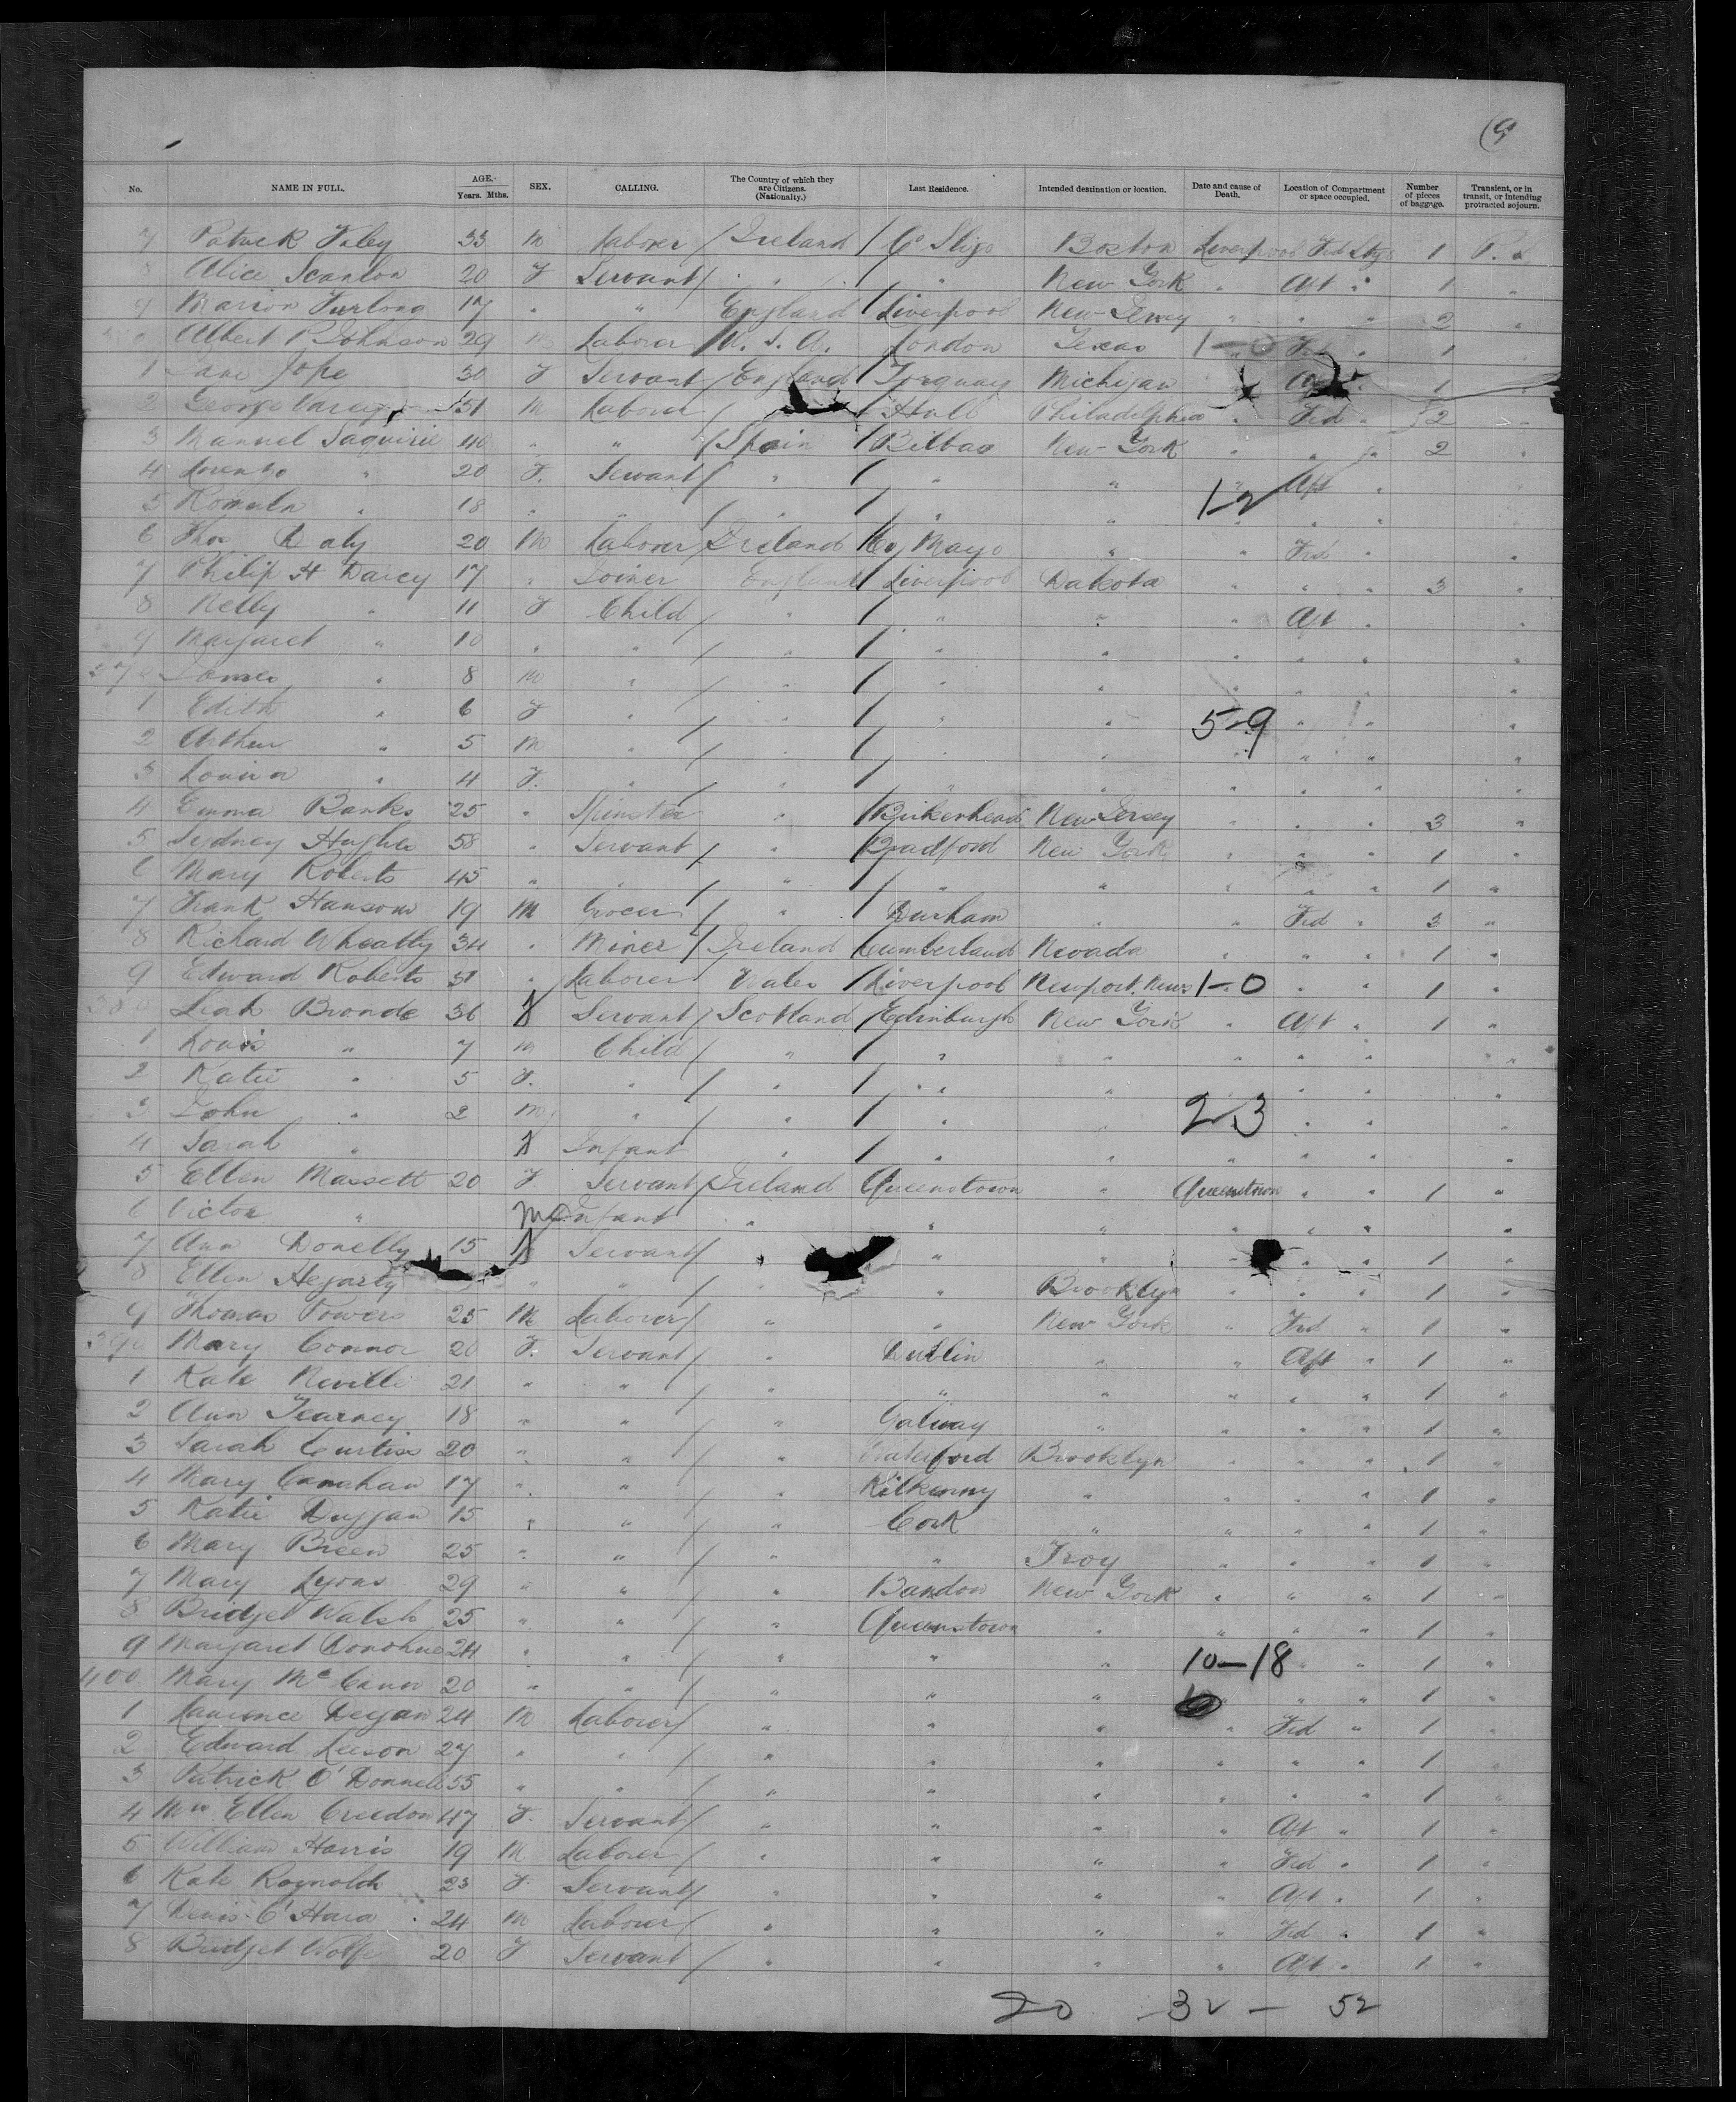 (9
No. NAME IN FULL. AGE. Years. Mths. SEX. CALLING. The Country of which they are Citizens. (Nationality.) Last Residence. Intended destination or location. Date and cause of Death. Location of Compartment or space occupied. Number of pieces of baggage. Transient, or in transit, or intending protracted sojourn.
7 Patrick Foley 33 M Laborer / Ireland / Co Sligo Boston Liverpool Frd Stg 1 P. S.
8 Alice Scanlon 20 F Servant / " " New York " Aft " 1 "
9 Marion Furlong 17 " " England / Liverpool New Jersey " " " 2 "
Albert P Johnson 29 M Laborer / U. S. A. London Texas 1-0 Frd " 1 "
1 Jane Jope 30 F Servant / England / Torquay Michigan " 1 "
2 George 51 M Laborer / / Hull Philadelphia " Frd " 2 "
3 Manuel Saquirie 46 " " / Spain / Bilbao New York " " " 2 "
4 " 20 F. Servant / " / " " 1-2 Aft "
5 Romula " 18 " " / " / " " " " "
6 Thos Daly 20 M Laborer / Ireland / Co Mayo " " Frd " "
7 Philip H Darcy 17 " Joiner England / Liverpool Dakota " " " 3 "
8 Nelly " 11 F Child / " / " " " Aft " "
9 Margaret " 10 " " / " / " " " " " "
370 James " 8 M " / " / " " " " " "
1 Edith " 6 F " / " / " " 5-9 " " "
2 Arthur " 5 M " / " / " " " " " "
3 Louisa " 4 F. " / " / " " " " " "
4 Emma Banks 25 " Spinster " / Birkenhead New Jersey " " " 3 "
5 Sydney Hughes 58 " Servant / " Bradford New York " " " 1 "
6 Mary Roberts 45 " " / " / " " " " " 1 "
7 Frank Hansom 19 M Grocer / " / Durham " " Frd " 3 "
8 Richard Wheatly 34 " Miner / Ireland Cumberland Nevada " " " 1 "
9 Edward Roberts 31 " Laborer Wales / Liverpool Newport. News 1-0 " " 1 "
380 Leah Bronde 36 F Servant / Scotland / Edinburgh New York " Aft " 1 "
1 Louis " 7 M Child / " / " " " " " "
2 Katie " 5 F. " / " / " " " " "
3 John " 2 M " / " / " " 2-3 " " "
4 Sarah " F Infant " / " " " " " "
5 Ellen Massett 20 F Servant / Ireland Queenstown " Queenstown " " 1 "
6 Victor " M Infant " " " " " " "
7 Ann Donelly 15 F Servant / " " " " " 1 "
8 Ellen Hegarty " " / " " Brooklyn " " " 1 "
9 Thomas Powers 25 M Laborer / " " New York " Frd " 1 "
390 Mary Connor 20 F. Servant / " Dublin " " Aft " 1 "
1 Kate Neville 21 " " / " " " " " " 1 "
2 Ann Fearney 18 " " / " Galway " " " " 1 "
3 Sarah Curtiss 20 " " / " Waterford Brooklyn " " " 1 "
4 Mary Canahan 17 " " / " Kilkenny " " " " 1 "
5 Katie Duggan 15 " " / " Cork " " " " 1 "
6 Mary Breen 25 " " / " " Troy " " " 1 "
7 Mary Lyons 29 " " / " Bandon New York " " " 1 "
8 Bridget Walsh 25 " " / " Queenstown " " " " 1 "
9 Margaret Donohue 24 " " / " " " 10-18 " " 1 "
400 Mary McCann 20 " " / " " " " " 1 "
1 Laurence Degan 24 M Laborer / " " " " Frd " 1 "
2 Edward Leeson 27 " " / " " " " " " 1 "
3 Patrick O'Donnell 55 " " / " " " " " " 1 "
4 Mrs Ellen Creedon 47 F. Servant / " " " " Aft " 1 "
5 William Harris 19 M Laborer / " " " " Frd " 1 "
6 Kate Reynolds 23 F. Servant / " " " " Aft " 1 "
7 Denis O'Hara 24 M Labour / " " " " Frd " 1 "
8 Bridget Wolfe 20 F Servant / " " " " Aft " 1 "
20 32 - 52